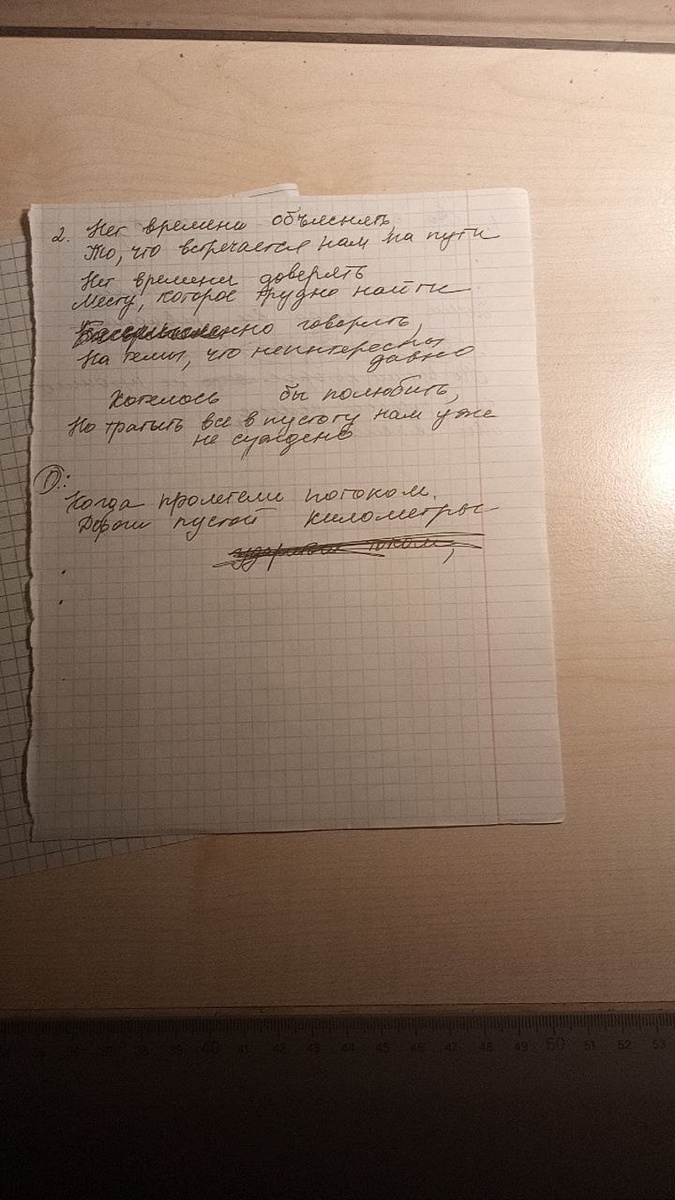 2. Нет времени объяснять
То, что встречается нам на пути
Нет времени доверять
Месту, которое трудно найти
Бессмысленно говорить,
На темы, что неинтересны
давно
Хотелось бы полюбить,
Но тратить все в пустоту нам уже
не суждено
П:
Когда пролетели потоком
Дороги пустой километры
током,
38 39 40 41 42 43 44 45 46 47 48 49 50 51 52 53